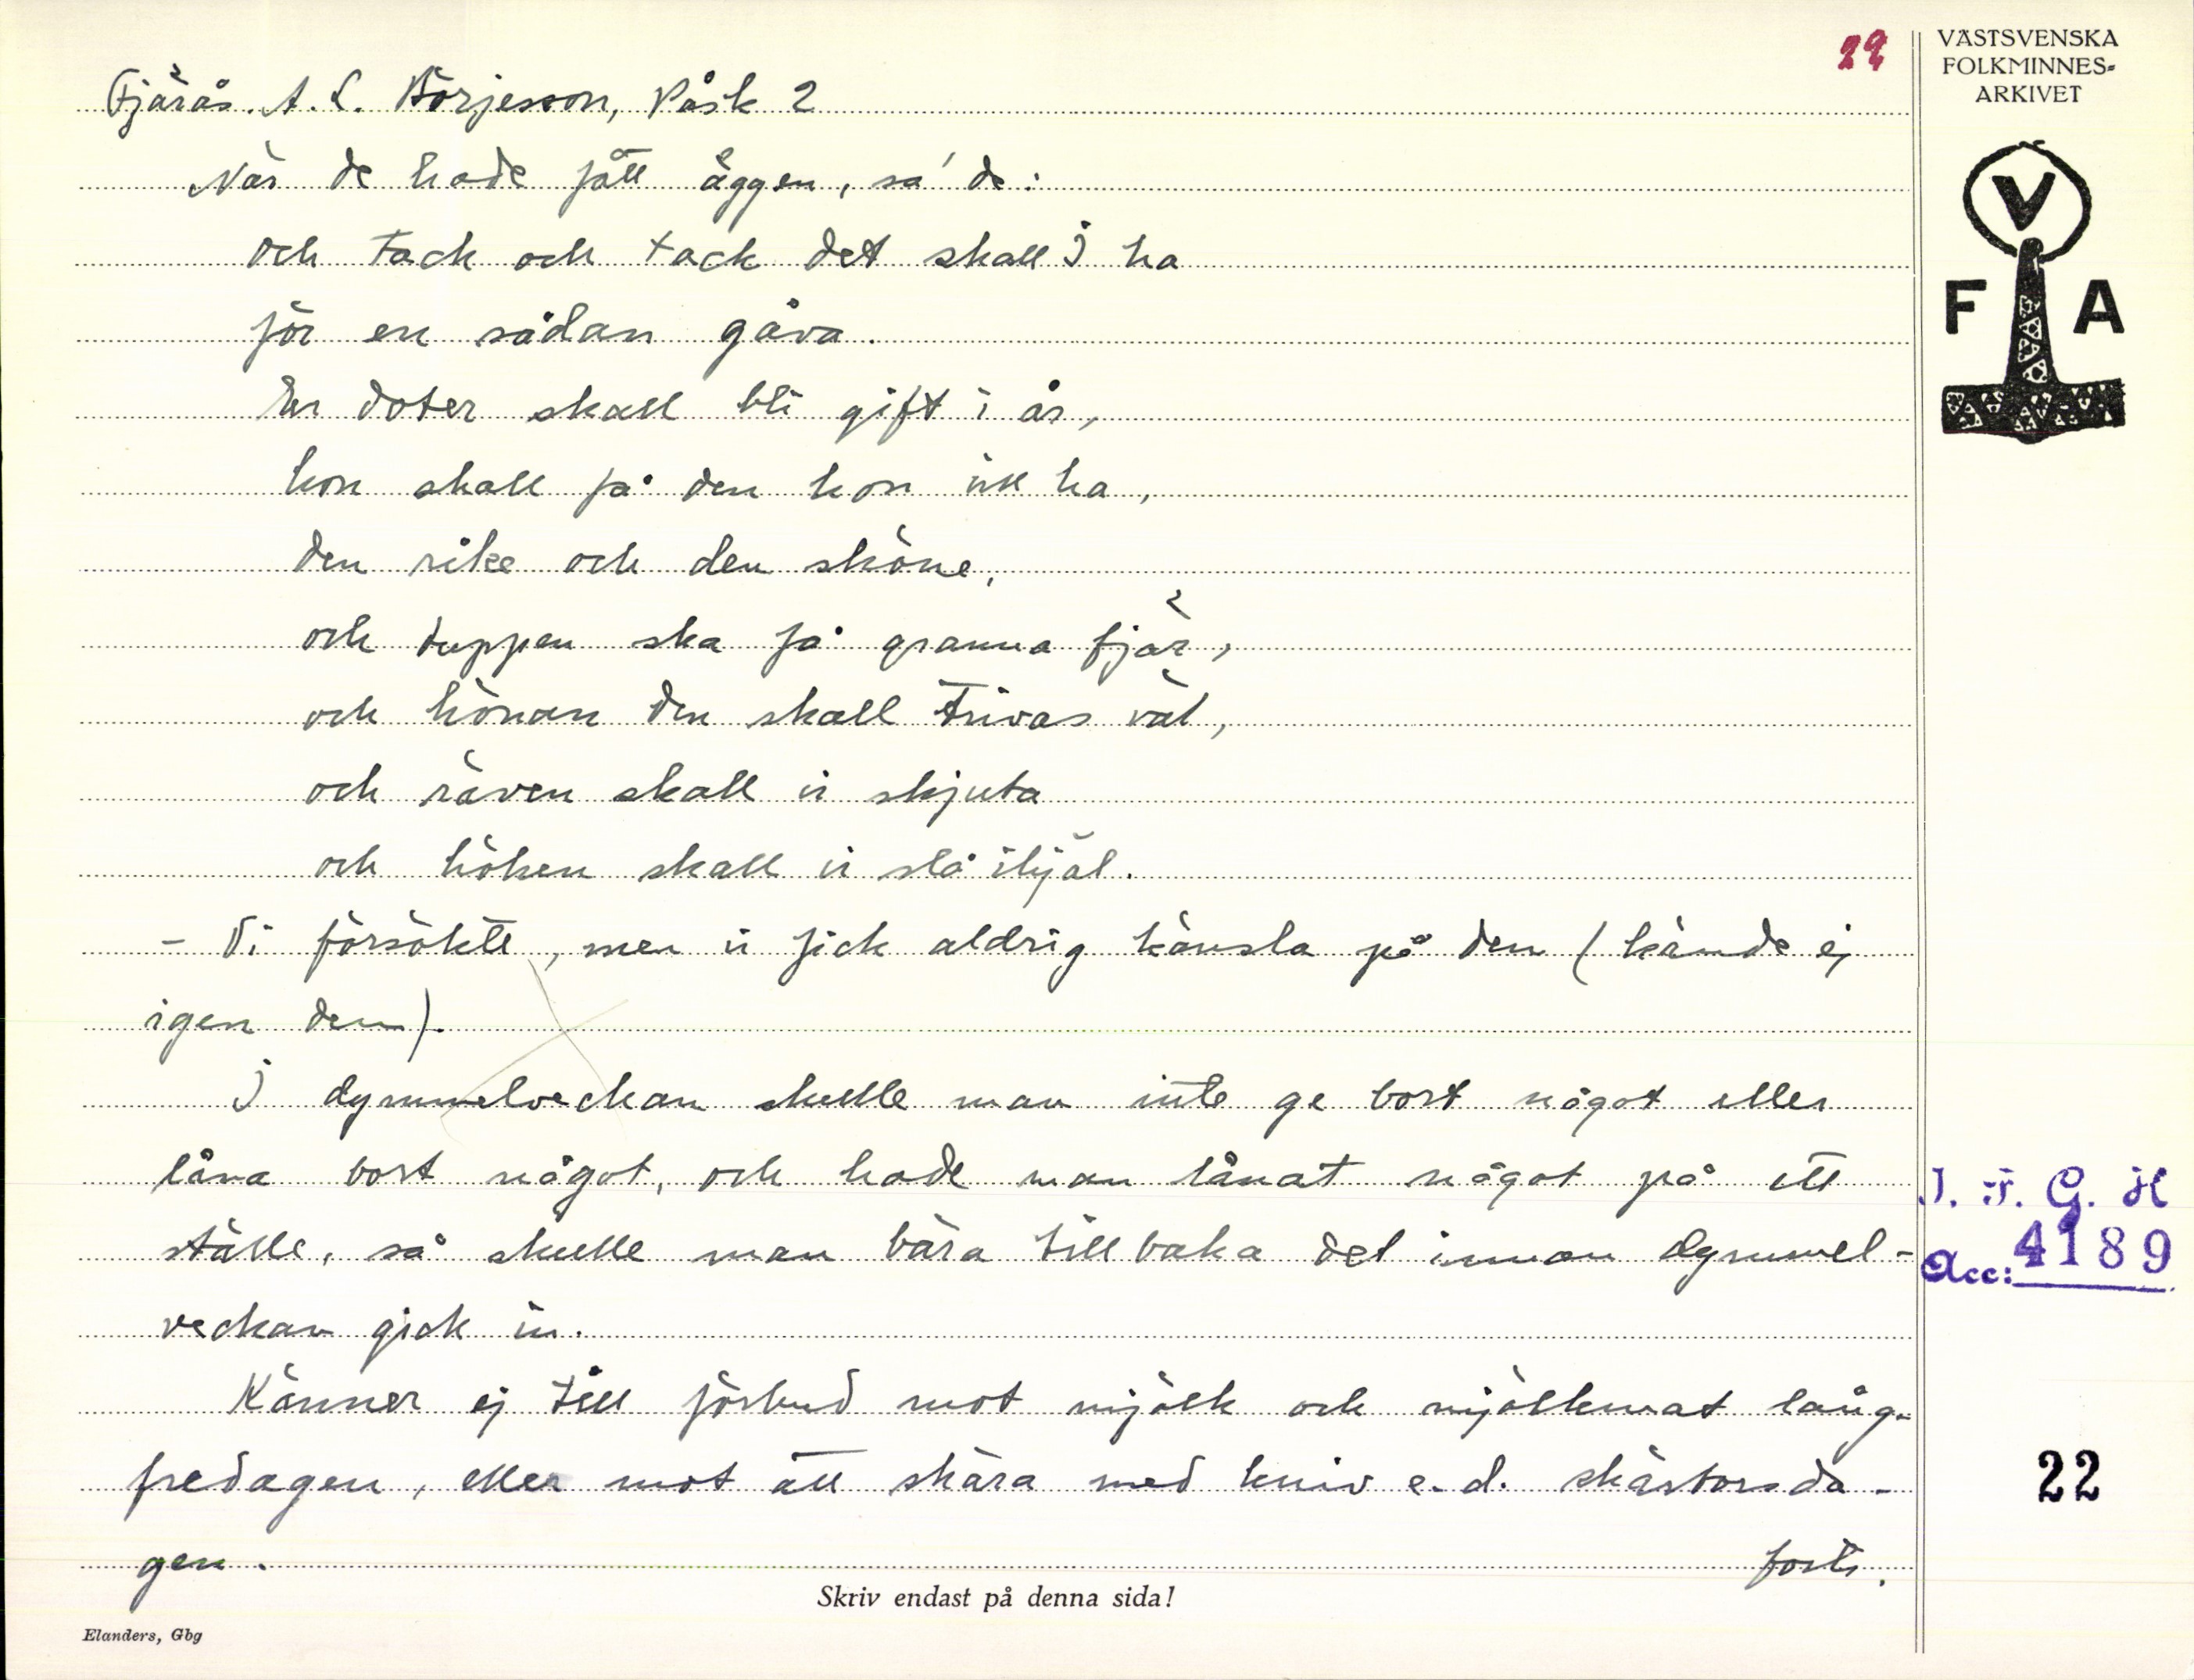 22
VÄSTSVENSKA
FOLKMINNES-
ARKIVET
V
F A
Fjärås. A. L. Börjesson, Påsk 2
När de hade fått äggen, sa' de:
och tack och tack det skall I ha
för en sådan gåva.
Er doter skall bli gift i år,
hon skall få den hon vill ha,
den rike och den sköne,
och tuppen ska få granna fjär,
och hönan den skall trivas väl,
och räven skall vi skjuta
och höken skall vi slå ihjäl.
- Vi försökte, men vi fick aldrig känsla på den (kände ej
igen dem).
I dymmelveckan skulle man inte ge bort något eller
låna bort något, och hade man lånat något på ett
ställe, så skulle man bära tillbaka det innan dymmel-
veckan gick in.
Känner ej till förbud mot mjölk och mjölkmat lång-
fredagen, eller mot att skära med kniv e.d. skärtorsda-
gen.
forts.
I. F. G. H
Acc: 4189
22
Skriv endast på denna sida!
Elanders, Gbg